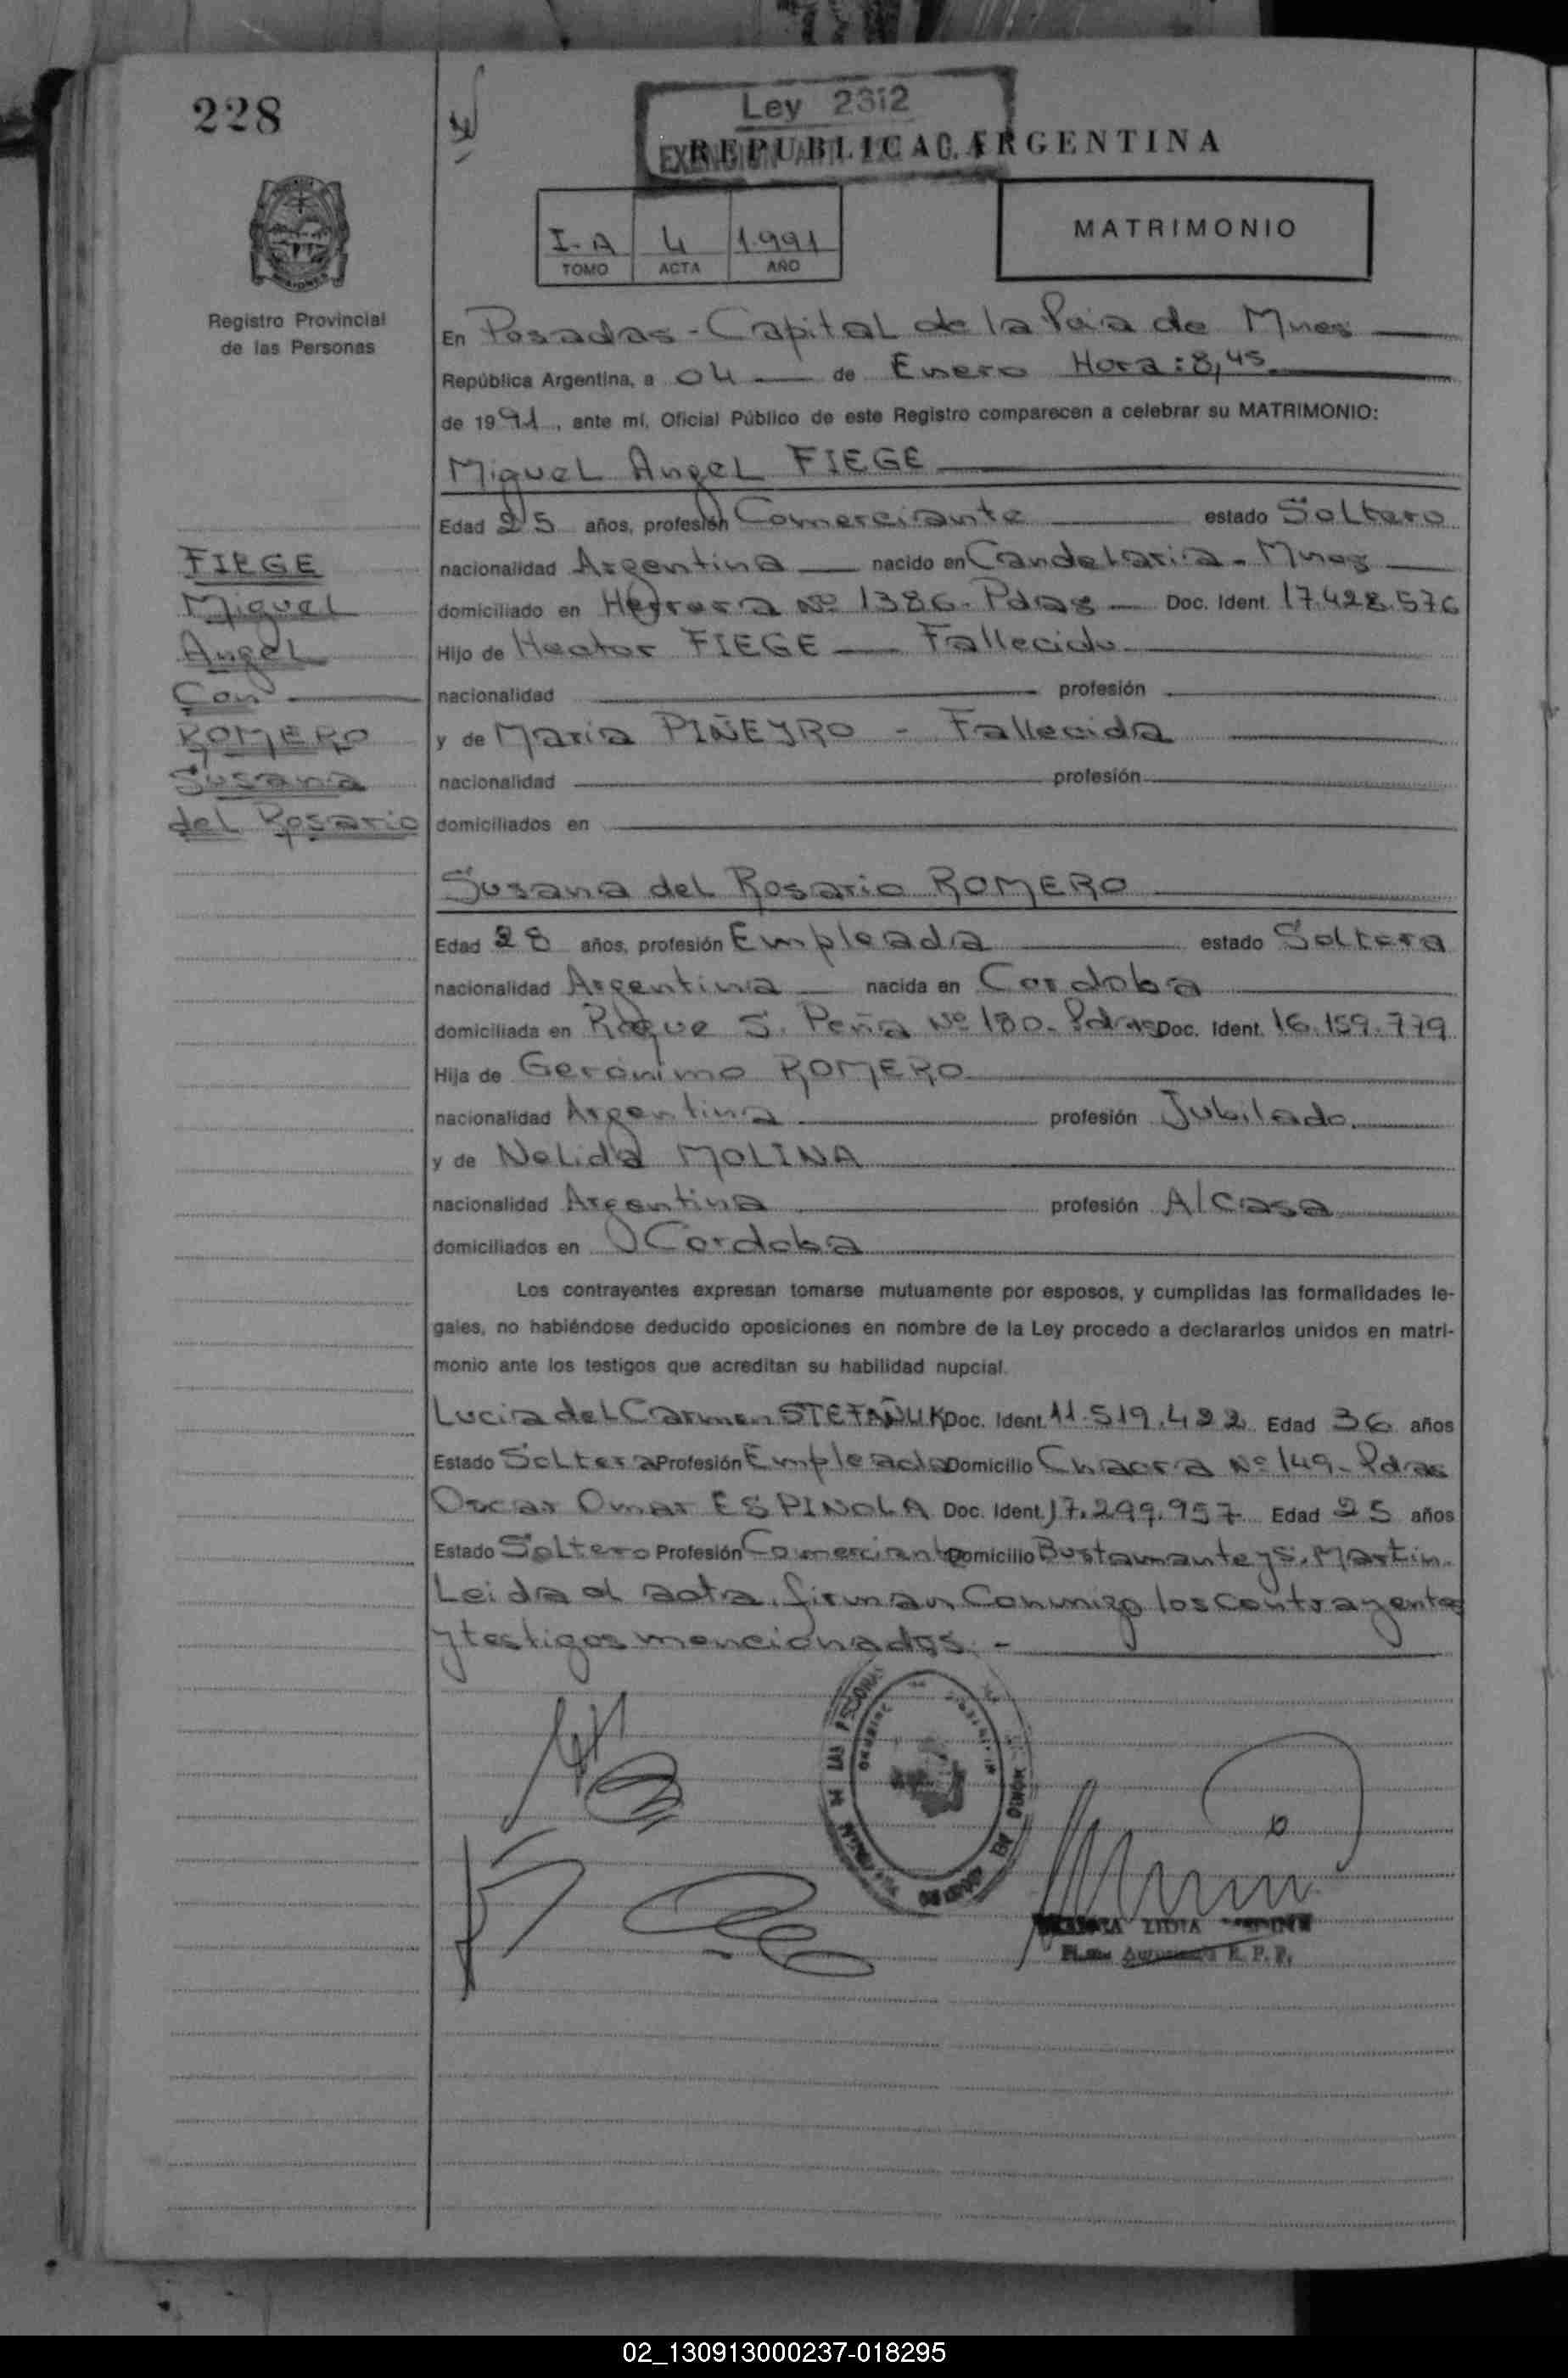 228
Ley 2312
REPUBLICA ARGENTINA
I-A 4 1.991
TOMO ACTA AÑO
MATRIMONIO
Registro Provincial
de las Personas
En Posadas - Capital de la Pcia de Mnes
República Argentina, a 04 de Enero Hora: 8,45
de 1991, ante mí, Oficial Público de este Registro comparecen a celebrar su MATRIMONIO:
Miguel Angel FIEGE
Edad 25 años, profesión Comerciante estado Soltero
nacionalidad Argentina nacido en Candelaria - Mnes
domiciliado en Herrera Nº 1386 - Pdas Doc. Ident. 17.428.576
Hijo de Hector FIEGE Fallecido
nacionalidad profesión
y de Maria PIÑEYRO - Fallecida
nacionalidad profesión
domiciliados en
FIEGE
Miguel
Angel
Con
ROMERO
Susana
del Rosario
Susana del Rosario ROMERO
Edad 28 años, profesión Empleada estado Soltera
nacionalidad Argentina nacida en Cordoba
domiciliada en Roque S. Peña Nº 180 - Pdas Doc. Ident. 16.159.779
Hija de Gerónimo ROMERO
nacionalidad Argentina profesión Jubilado
y de Nelida MOLINA
nacionalidad Argentina profesión Al Casa
domiciliados en Cordoba
Los contrayentes expresan tomarse mutuamente por esposos, y cumplidas las formalidades le-
gales, no habiéndose deducido oposiciones en nombre de la Ley procedo a declararlos unidos en matri-
monio ante los testigos que acreditan su habilidad nupcial.
Lucia del Carmen STEFAÑUK Doc. Ident. 11.519.422 Edad 36 años
Estado Soltera Profesión Empleada Domicilio Chacra Nº 149 - Pdas
Oscar Omar ESPINOLA Doc. Ident. 17.299.957 Edad 25 años
Estado Soltero Profesión Comerciante Domicilio Bustamante y S. Martin.
Leida el acta, firman Conmigo los contrayentes
y testigos mencionados. -
LIDIA
02_130913000237-018295